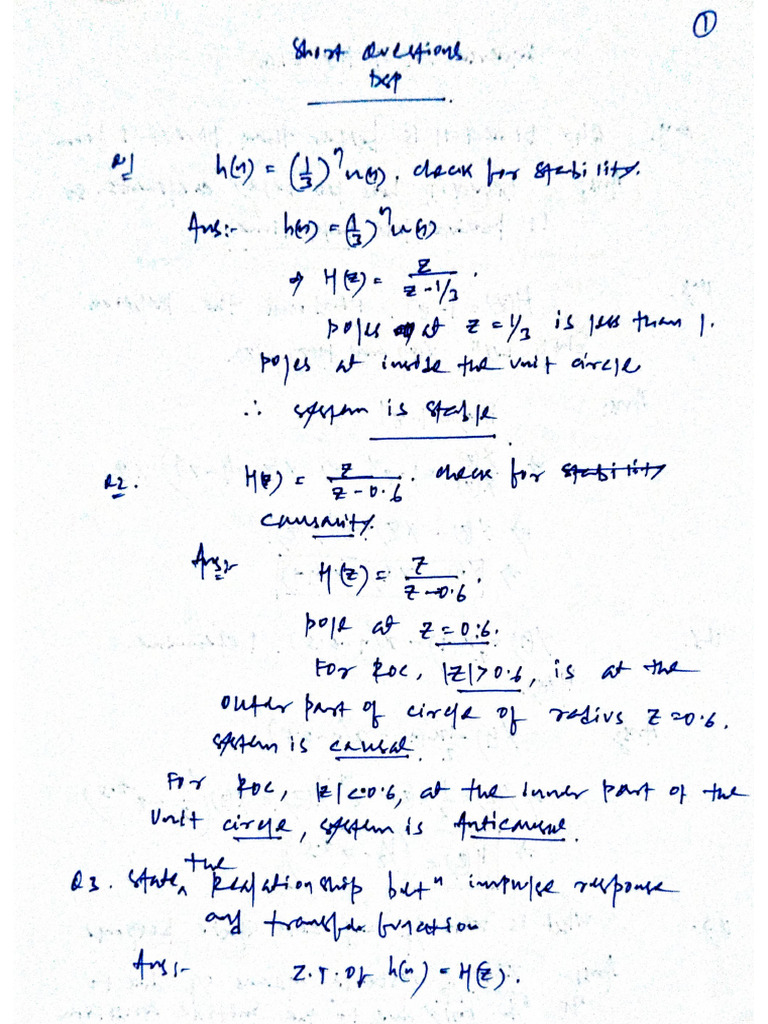 ①
Short Questions
DSP
Q1 h(n) = (1/3)^n u(n). check for stability.
Ans:- h(n) = (1/3)^n u(n)
⇒ H(z) = z / (z - 1/3) .
poles at z = 1/3 is less than 1.
poles at inside the unit circle
∴ system is stable
Q2. H(z) = z / (z - 0.6) . check for stability
causality.
Ans:- H(z) = z / (z - 0.6) .
pole at z = 0.6.
For ROC, |z| > 0.6, is at the
outer part of circle of radius z = 0.6.
system is causal.
For ROC, |z| < 0.6, at the inner part of the
unit circle, system is Anticausal.
Q3. State the Relationship betn impulse response
and transfer function
Ans:- Z.T. of h(n) = H(z).